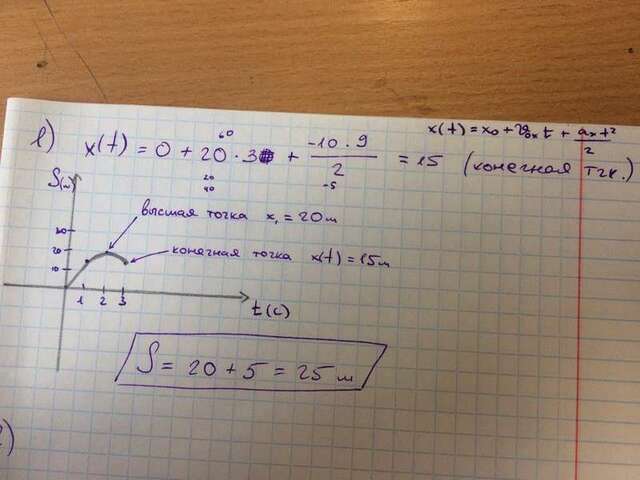 x(t) = x₀ + v₀ₓ t + aₓ t² / 2
1) x(t) = 0 + 20 · 3 + -10 · 9 / 2 = 15 (конечная тчк.)
60
20
40
-5
S(м)
высшая точка x₁ = 20 м
конечная точка x(t) = 15 м
30
20
10
1 2 3
t (с)
S = 20 + 5 = 25 м
2)